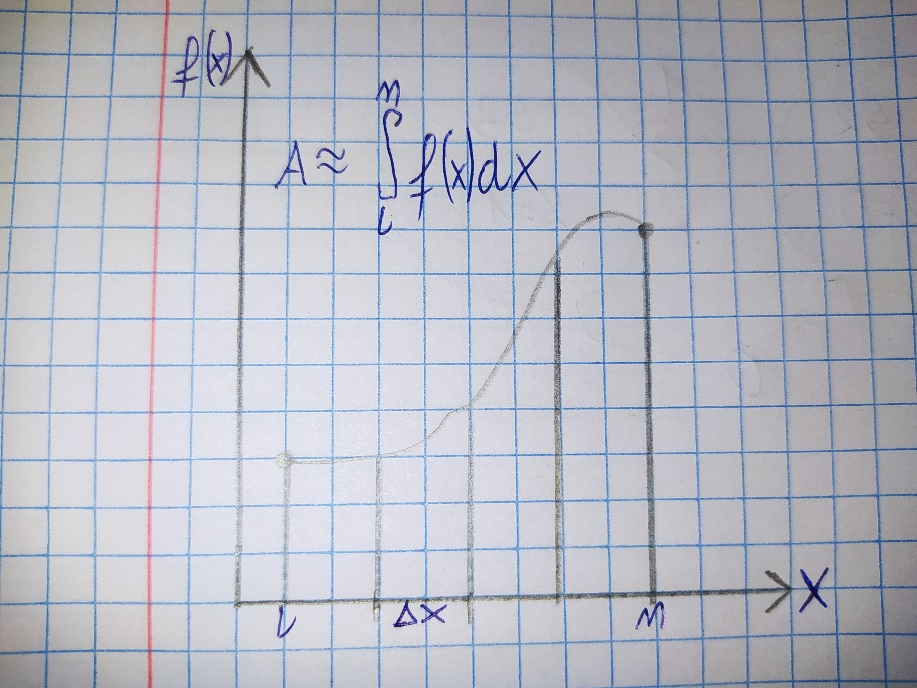 f(x)
A ≈ ∫ₗᵐ f(x)dx
l Δx m X